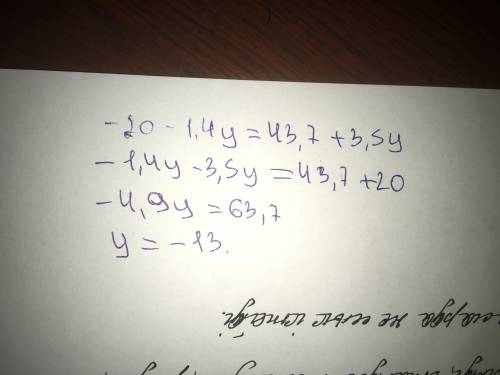 -20 - 1,4y = 43,7 + 3,5y
-1,4y - 3,5y = 43,7 + 20
-4,9y = 63,7
y = -13.